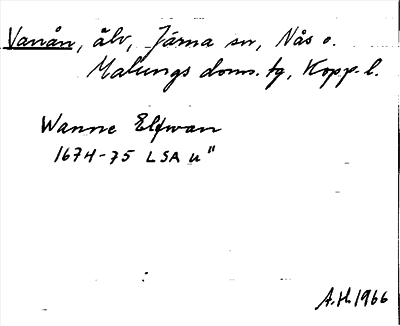 Vanån, älv, Järna sn, Nås o.
Malungs doms. tg, Kopp. l.
Wanne Elfwan
1674-75 LSA u"
A.H. 1966